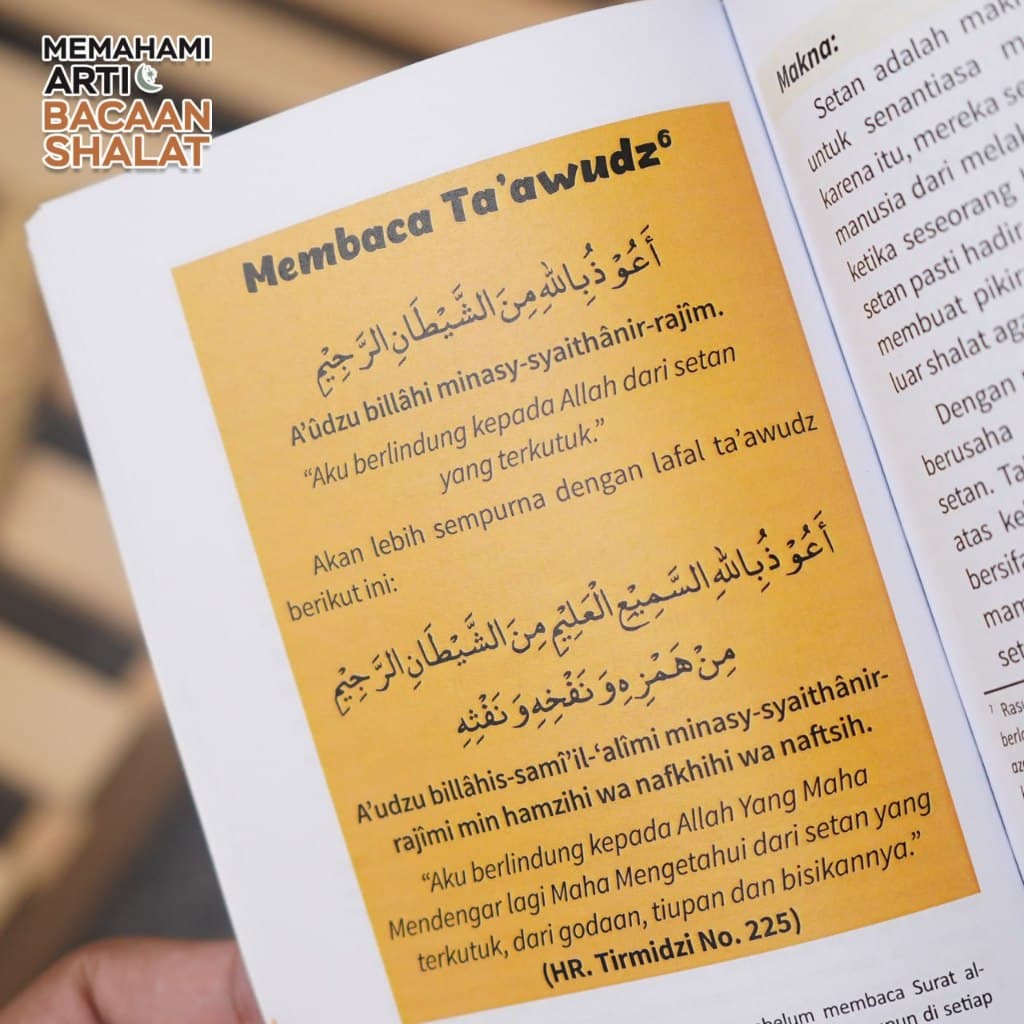 MEMAHAMI
ARTI
BACAAN
SHALAT
Membaca Ta'awudz⁶
أَعُوْذُ بِاللهِ مِنَ الشَّيْطَانِ الرَّجِيْمِ
A'ûdzu billâhi minasy-syaithânir-rajîm.
“Aku berlindung kepada Allah dari setan
yang terkutuk.”
Akan lebih sempurna dengan lafal ta'awudz
berikut ini:
أَعُوْذُ بِاللهِ السَّمِيْعِ الْعَلِيْمِ مِنَ الشَّيْطَانِ الرَّجِيْمِ
مِنْ هَمْزِهِ وَ نَفْخِهِ وَ نَفْثِهِ
A'udzu billâhis-samî'il-‘alîmi minasy-syaithânir-
rajîmi min hamzihi wa nafkhihi wa naftsih.
“Aku berlindung kepada Allah Yang Maha
Mendengar lagi Maha Mengetahui dari setan yang
terkutuk, dari godaan, tiupan dan bisikannya.”
(HR. Tirmidzi No. 225)
membaca Surat al-
di setiap
Makna:
Setan adalah
untuk senantiasa
karena itu, mereka
manusia dari
ketika seseorang
setan pasti hadir
membuat
luar shalat
Dengan
berusaha
setan.
atas